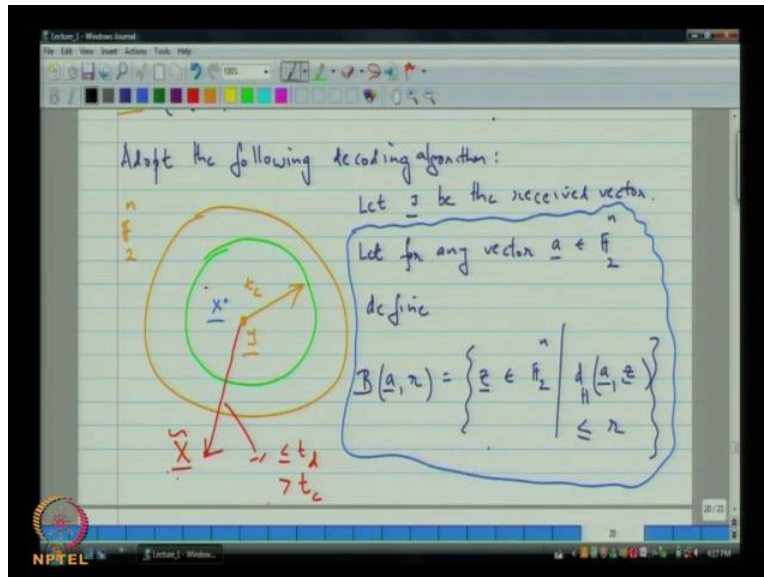 Lecture_1 - Windows Journal
File Edit View Insert Actions Tools Help
100%
B I
Adopt the following decoding algorithm:
Let y be the received vector.
Let for any vector a ∈ F_2^n
define
B(a, r) = { z ∈ F_2^n | d_H(a, z) ≤ r }
F_2^n
t_c
x
y
x̃
≤ t_d
> t_c
20 / 20
20
NPTEL
Lecture_1 - Window...
4:17 PM